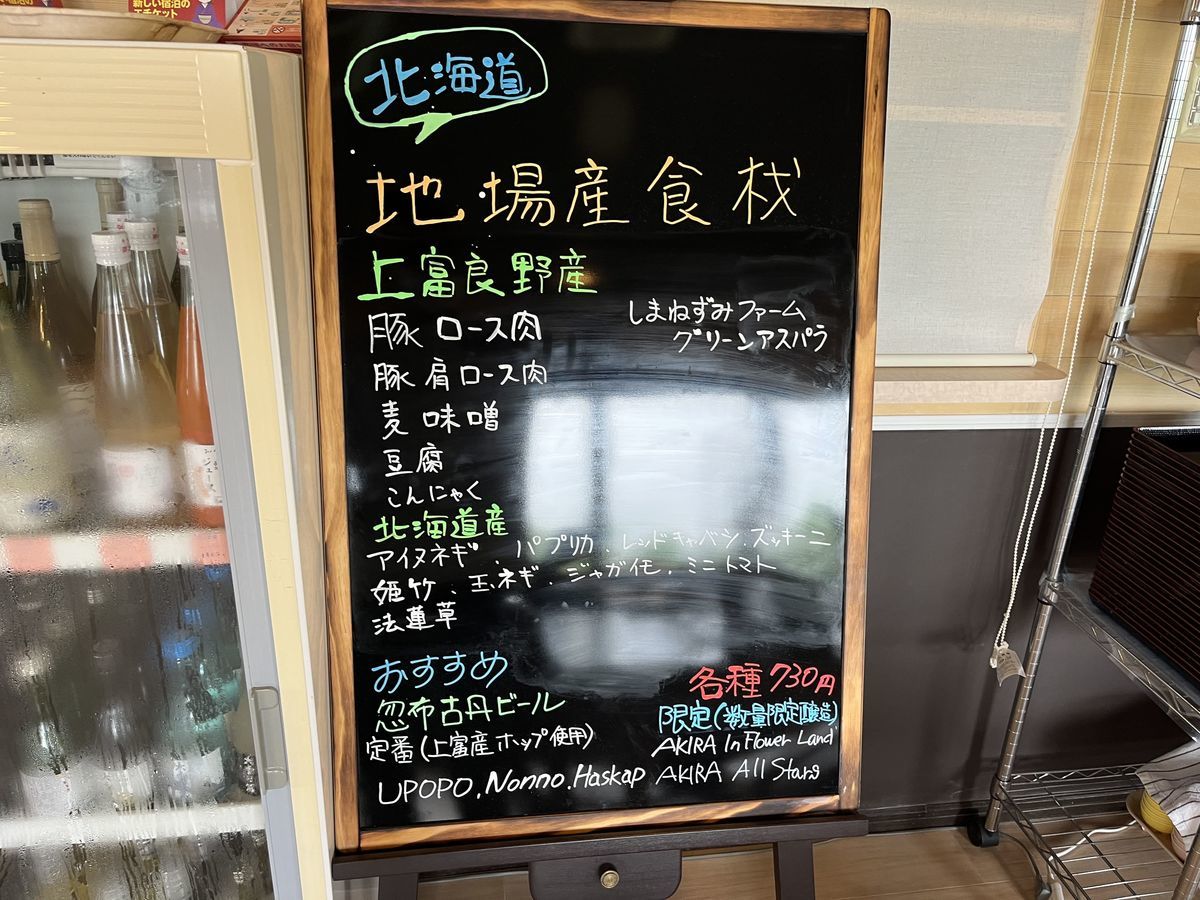 新しい宿泊の
エチケット
北海道
地場産食材
上富良野産
豚ロース肉
豚肩ロース肉
麦味噌
豆腐
こんにゃく
しまねずみファーム
グリーンアスパラ
北海道産
アイヌネギ、パプリカ、レッドキャベツ、ズッキーニ
姫竹、玉ネギ、ジャガイモ、ミニトマト
法蓮草
おすすめ
忽布古丹ビール
定番(上富産ホップ使用)
UPOPO.Nonno.Haskap
各種730円
限定(数量限定醸造)
AKIRA In Flower Land
AKIRA All Stars